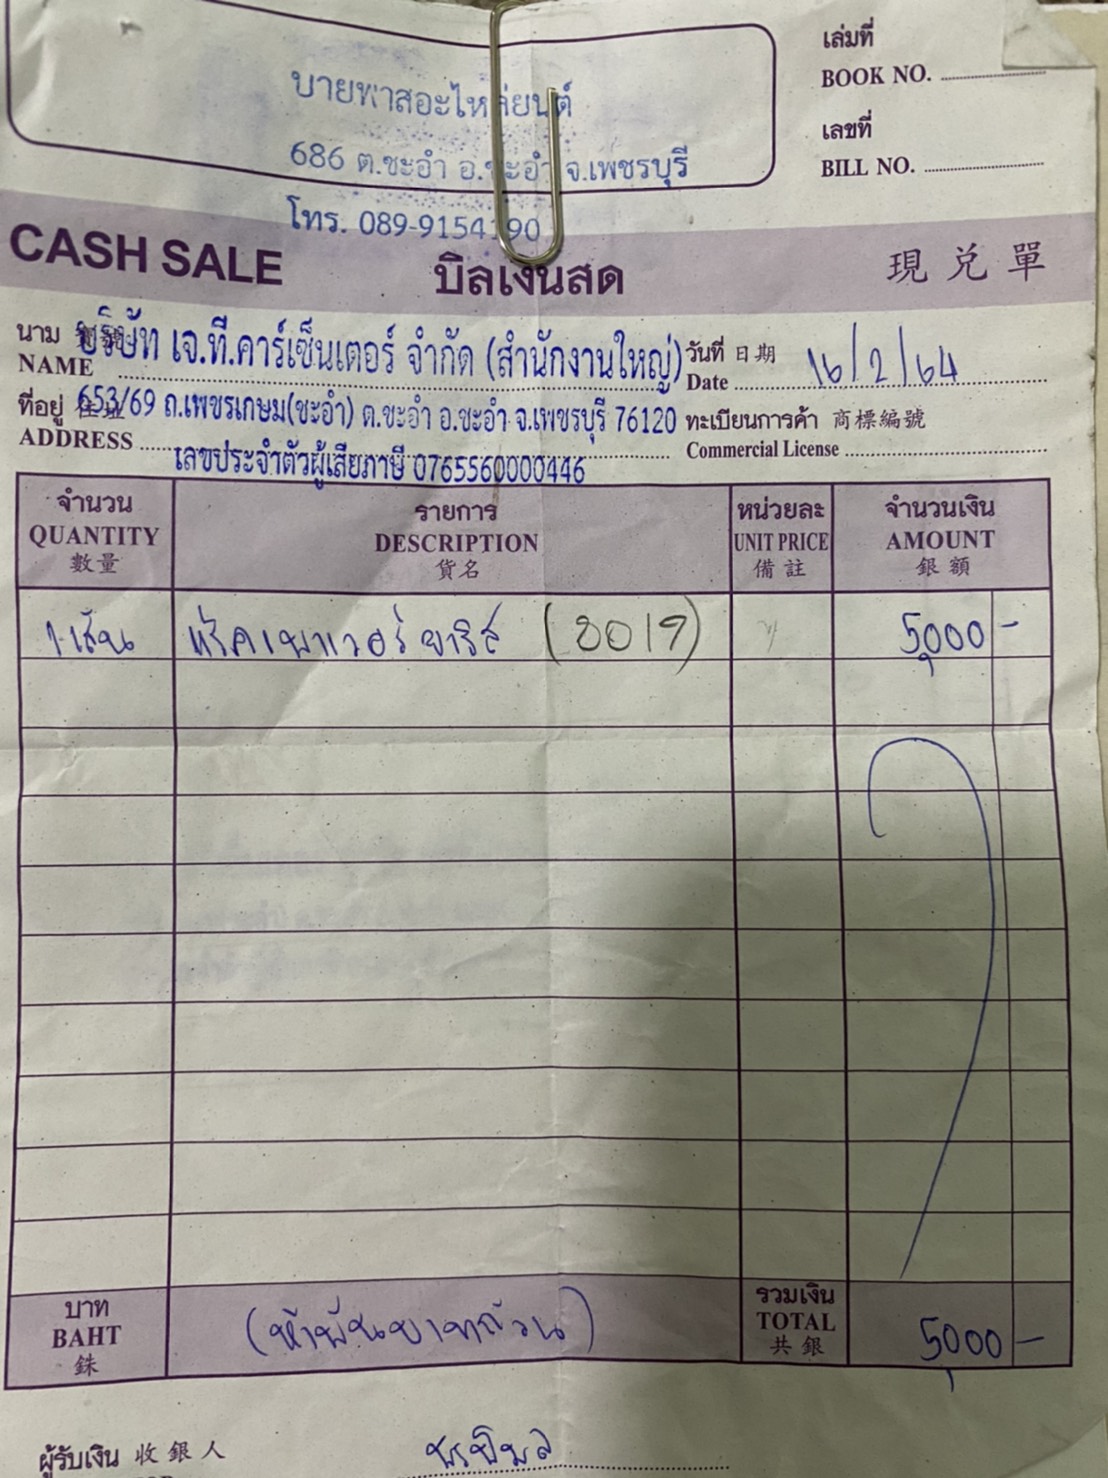 บายพาสอะไหล่ยนต์
686 ต.ชะอำ อ.ชะอำ จ.เพชรบุรี
โทร. 089-9154190
เล่มที่
BOOK NO.
เลขที่
BILL NO.
CASH SALE บิลเงินสด 現兌單
นาม บริษัท เจ.ที.คาร์เซ็นเตอร์ จำกัด (สำนักงานใหญ่) วันที่ 日期
NAME Date 16/2/64
ที่อยู่ 653/69 ถ.เพชรเกษม(ชะอำ) ต.ชะอำ อ.ชะอำ จ.เพชรบุรี 76120 ทะเบียนการค้า 商標編號
ADDRESS Commercial License
เลขประจำตัวผู้เสียภาษี 0765560000446
จำนวน รายการ หน่วยละ จำนวนเงิน
QUANTITY DESCRIPTION UNIT PRICE AMOUNT
數量 貨名 備註 銀額
1 เส้น แร็คเพาเวอร์ ยาริส (2019) 5,000 -
บาท (ห้าพันบาทถ้วน) รวมเงิน
BAHT TOTAL 5,000 -
銖 共銀
ผู้รับเงิน 收銀人